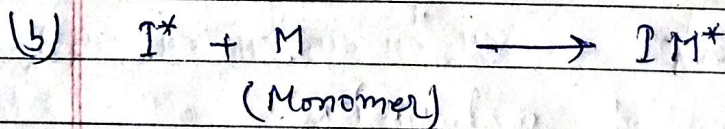 (b) I* + M ⟶ IM*
(Monomer)